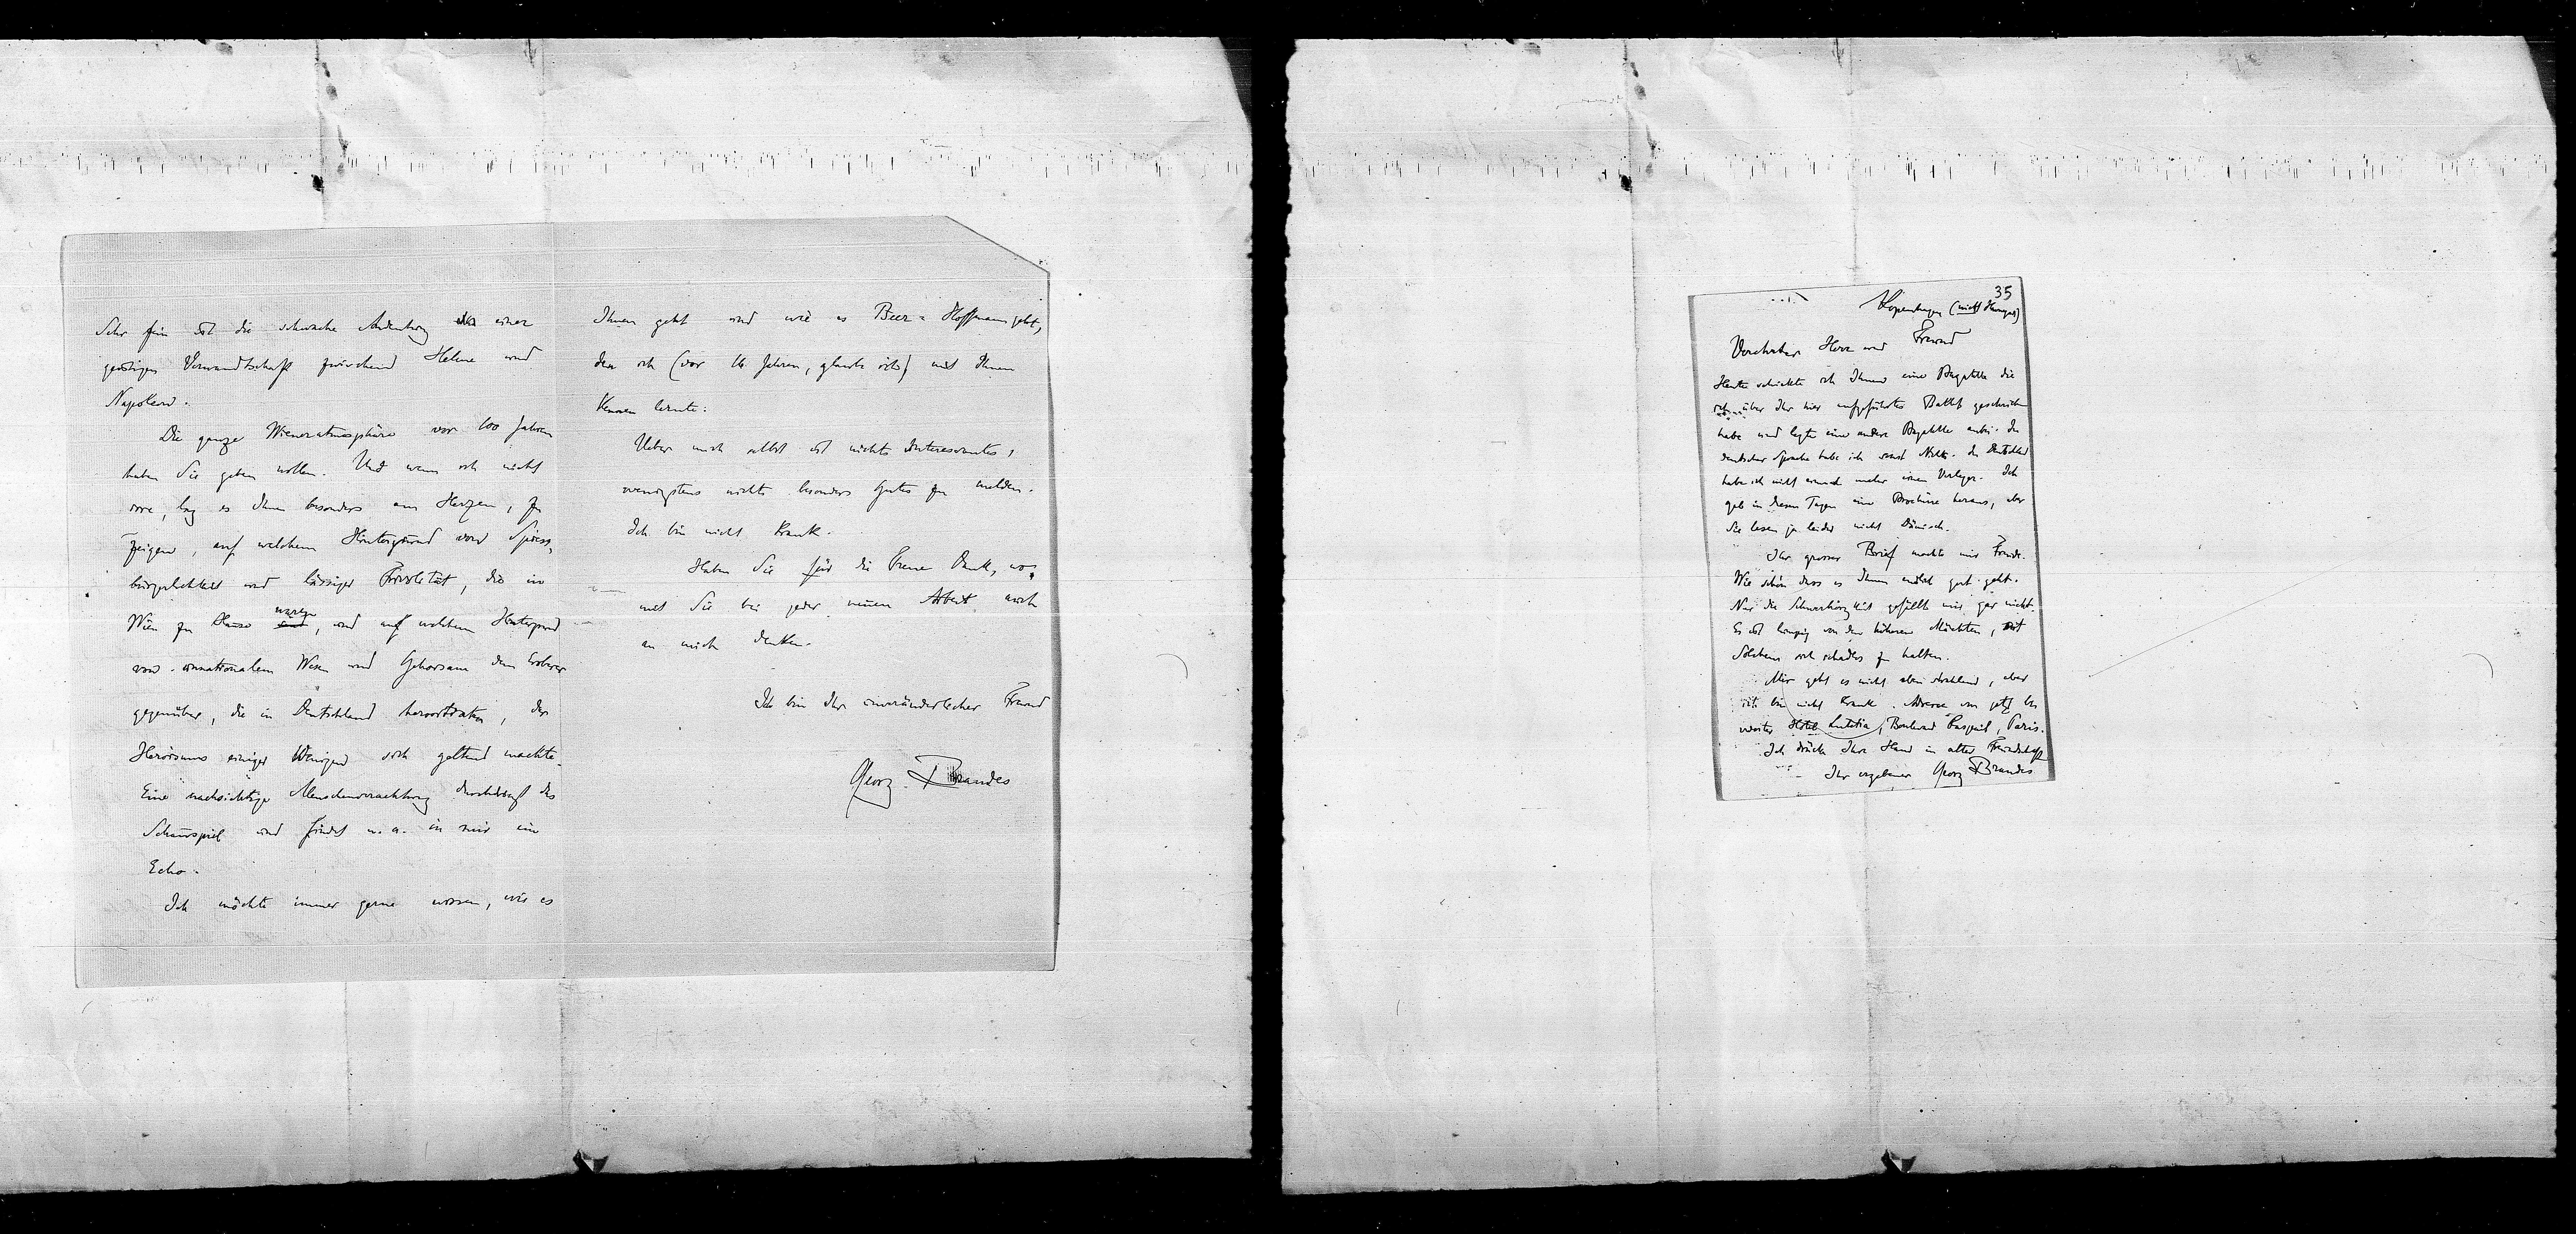 Sehr fein ist die schwache Andeutung einer
geistigen Verwandtschaft zwischen Helene und
Napoleon.
Die ganze Wieneratmosphäre vor 100 Jahren
haben Sie geben wollen. Und wenn ich nicht
irre, lag es Ihnen besonders am Herzen, zu
zeigen, auf welchem Hintergrund von Spiess-
bürgerlichkeit und lässiger Frivolität, die in
Wien zu Hause waren, und auf welchem Hintergrund
von unnationalem Wesen und Gehorsam dem Eroberer
gegenüber, die in Deutschland hervortraten, der
Heroismus einiger Wenigen sich geltend machte.
Eine nachsichtige Menschenverachtung durchdringt das
Schauspiel und findet u. a. in mir ein
Echo.
Ich möchte immer gerne wissen, wie es
Ihnen geht und wie es Beer-Hoffmann geht,
den ich (vor 16 Jahren, glaube ich) mit Ihnen
kennen lernte.
Ueber mich selbst ist nichts Interessantes,
wenigstens nichts besonders Gutes zu melden.
Ich bin nicht krank.
Haben Sie für die Treue Dank, wo-
mit Sie bei jeder neuen Arbeit auch
an mich denken.
Ich bin Ihr unveränderlicher Freund
Georg Brandes
35
Kopenhagen (nicht Havnegad)
Verehrter Herr und Freund
Heute schickte ich Ihnen eine Bagatelle die
ich über Ihr hier aufgeführtes Ballet geschrieben
habe und legte eine andere Bagatelle anbei. In
deutscher Sprache habe ich sonst Nichts. In Deutschland
habe ich nicht einmal mehr einen Verleger. Ich
gab in diesen Tagen eine Brochüre heraus, aber
Sie lesen ja leider nicht Dänisch.
Ihr grosser Brief machte mir Freude.
Wie schön dass es Ihnen endlich gut geht.
Nur die Schwerhörigkeit gefällt mir gar nicht.
Es ist von den höheren Mächten, mit
Solchem sich schadlos zu halten.
Mir geht es nicht eben strahlend, aber
ich bin nicht krank. Adresse von jetzt bis
weiter Hotel Lutetia, Boulevard Raspail, Paris.
Ich drücke Ihre Hand in alter Freundschaft
Ihr ergebener Georg Brandes